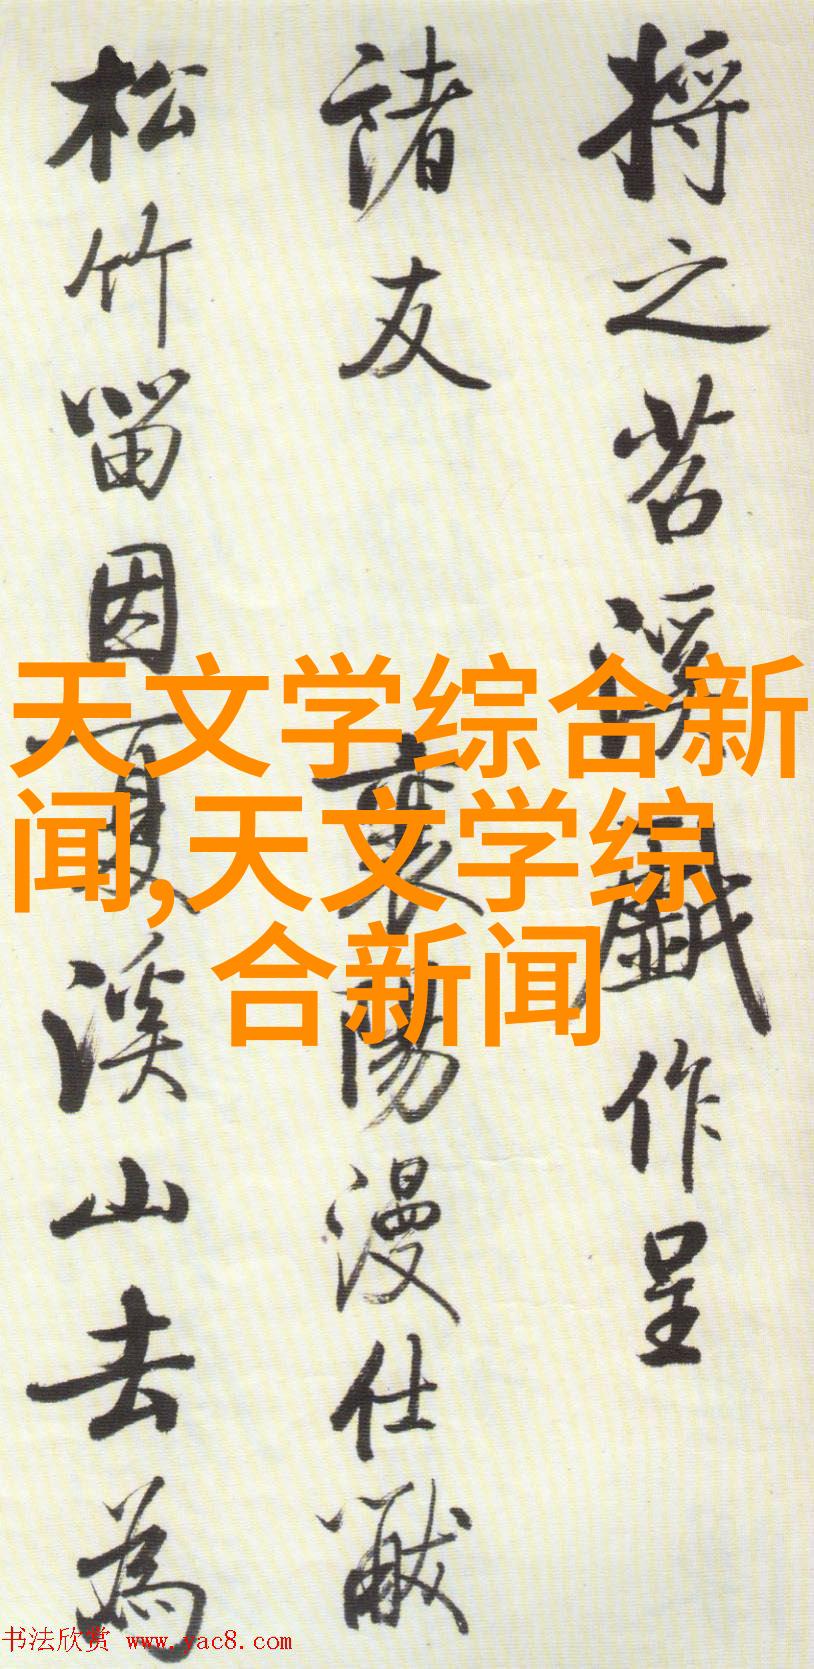 将之苕溪戯作呈
诸友
襄陽漫仕黻
松竹留因夏溪山去為
天文学综合新
闻,天文学综
合新闻
书法欣赏 www.yac8.com